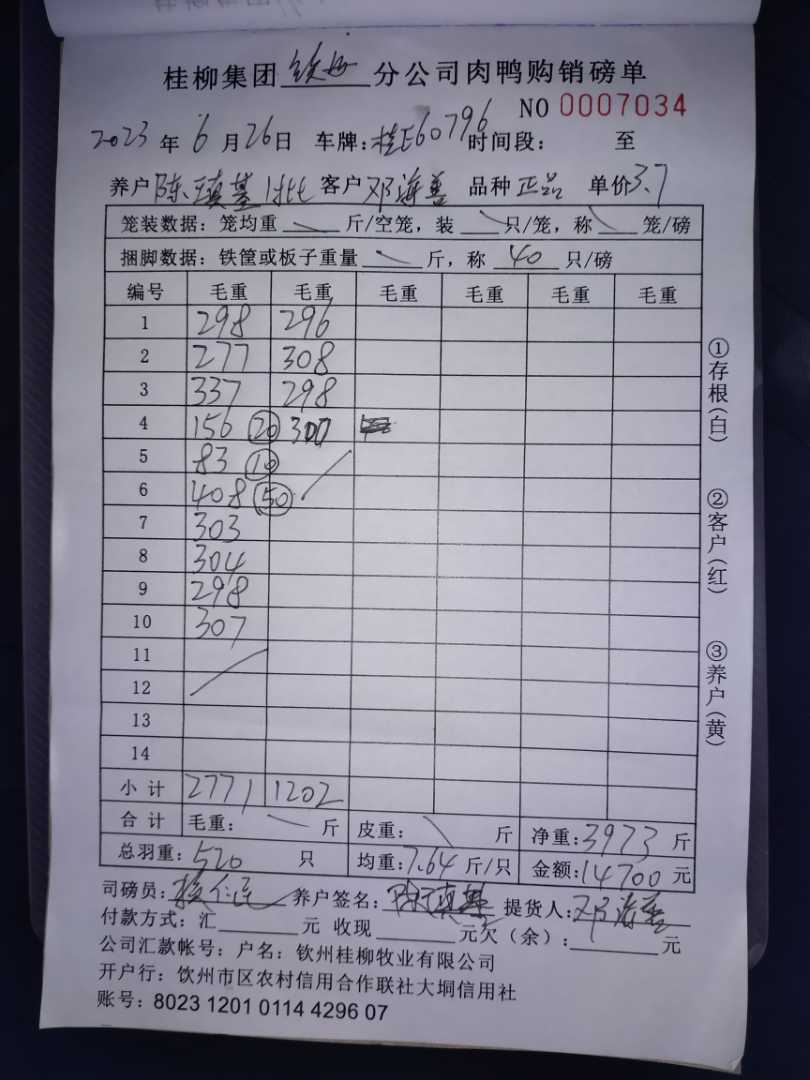 桂柳集团钦州分公司肉鸭购销磅单
NO 0007034
2023年6月26日 车牌:桂E60796 时间段: 至
养户陈瑱基1批 客户邓海善 品种正品 单价3.7
笼装数据:笼均重 斤/空笼,装 只/笼,称 笼/磅
捆脚数据:铁筐或板子重量 斤,称 40 只/磅
编号 毛重 毛重 毛重 毛重 毛重 毛重
1 298 296
2 277 308
3 337 298
4 156 20 300
5 83 10
6 408 50
7 303
8 304
9 298
10 307
11
12
13
14
小计 2771 1202
合计 毛重: 斤 皮重: 斤 净重:3973斤
总羽重:520 只 均重:7.64斤/只 金额:14700元
司磅员: 养户签名:陈瑱基 提货人:邓海善
付款方式:汇 元 收现 元欠(余): 元
公司汇款帐号:户名:钦州桂柳牧业有限公司
开户行:饮州市区农村信用合作联社大垌信用社
账号:8023 1201 0114 4296 07
①存根(白)
②客户(红)
③养户(黄)